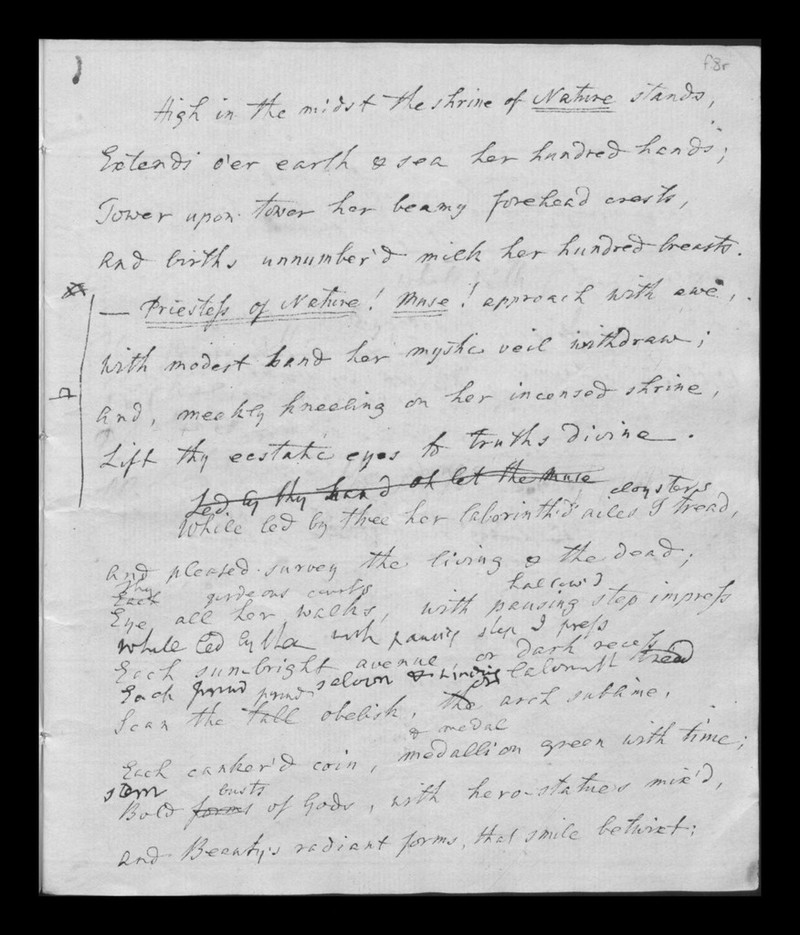 f8r
High in the midst the shrine of Nature stands,
Extends o'er earth & sea her hundred hands;
Tower upon tower her beamy forehead crests,
And births unnumber'd milk her hundred breasts.
— Priestess of Nature! Muse! approach with awe,
With modest hand her mystic veil withdraw;
And, meekly kneeling on her incensed shrine,
Lift thy ecstatic eyes to truths divine.
Led by thy hand oh let the Muse
cloysters
While led by thee her laborinth'd ailes I tread,
And pleased survey the living & the dead;
Thy gorgeous courts hallow'd
Each
Eye all her walks, with pausing step impress
While led by with pausing step I press
Each sun-bright avenue, or dark recess
Each proud saloon & winding or laborinth tread
Scan the tall obelisk, the arch sublime,
& medal
Each canker'd coin, medallion green with time;
stern busts
Bold forms of Gods, with hero-statues mix'd,
And Beauty's radiant forms, that smile betwixt;